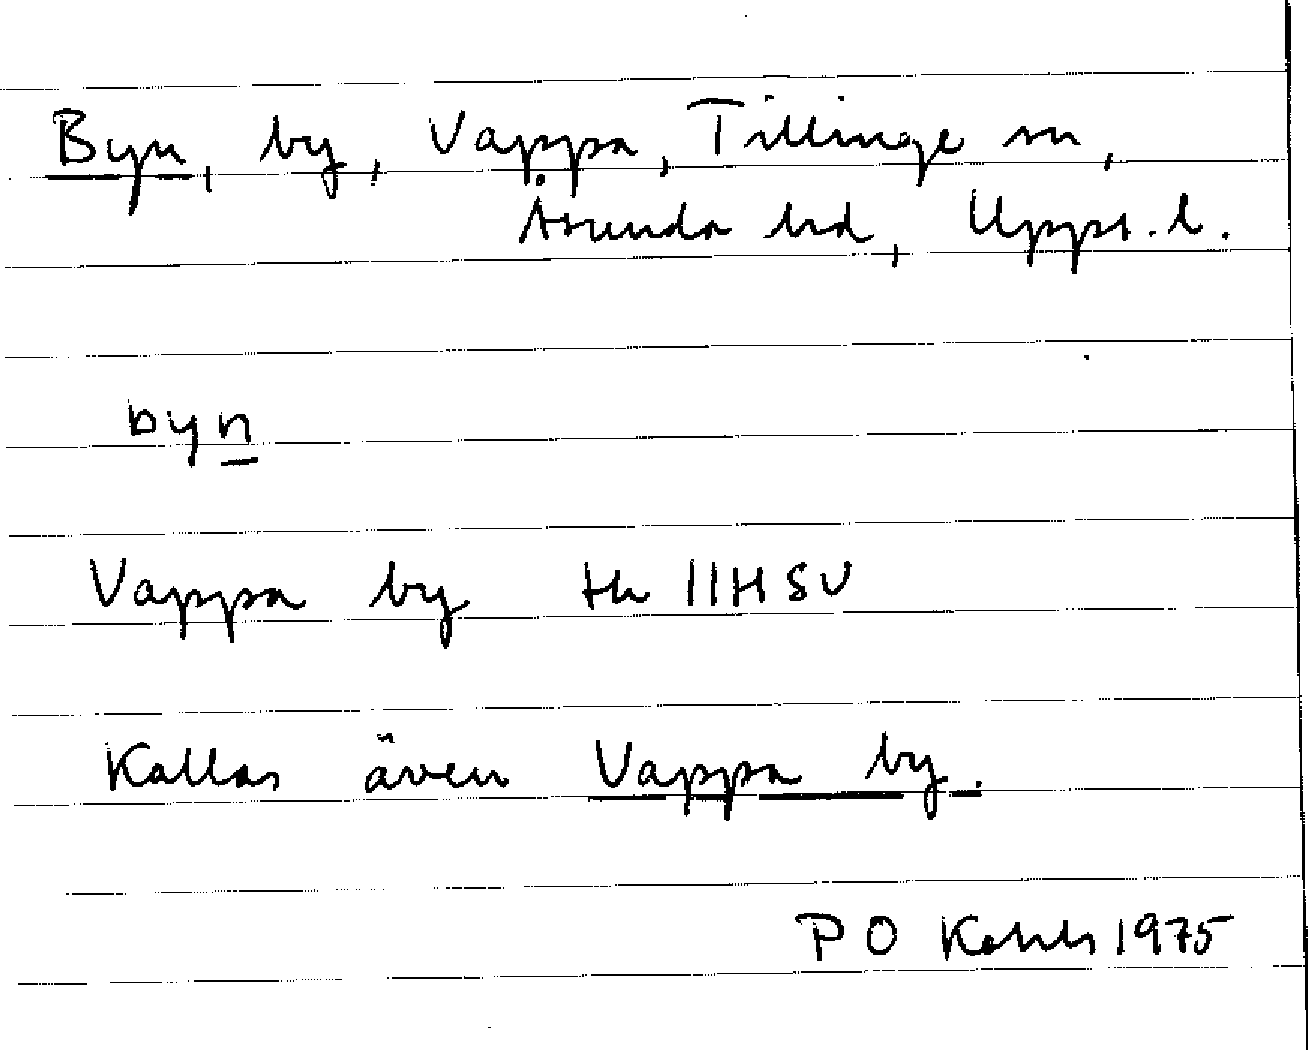 Byn, by, Vappa, Tillinge sn,
Åsunda hd, Upps. l.
byn
Vappa by 11HSV
Kallas även Vappa by.
P O 1975